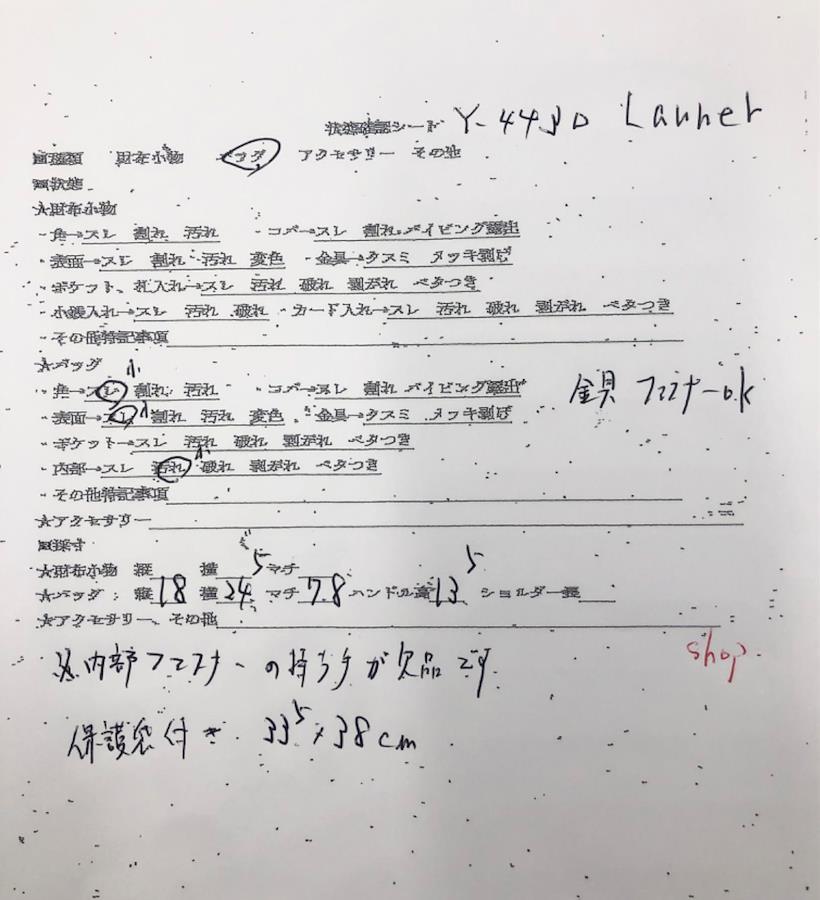 状態確認シート Y-44JD Launer
■種類 財布小物 バッグ アクセサリー その他
■状態
★財布小物
・角→スレ 割れ 汚れ ・コバ→スレ 割れ パイピング露出
・表面→スレ 割れ 汚れ 変色 ・金具→クスミ メッキ剥げ
・ポケット、札入れ→スレ 汚れ 破れ 剥がれ ベタつき
・小銭入れ→スレ 汚れ 破れ ・カード入れ→スレ 汚れ 破れ 剥がれ ベタつき
・その他特記事項
★バッグ
・角→スレ小 割れ 汚れ ・コバ→スレ 割れ パイピング露出 金具 ファスナーok
・表面→スレ小 割れ 汚れ 変色 ・金具→クスミ メッキ剥げ
・ポケット→スレ 汚れ 破れ 剥がれ ベタつき
・内部→スレ 汚れ小 破れ 剥がれ ベタつき
・その他特記事項
★アクセサリー
■採寸
★財布小物 縦 横 マチ
★バッグ: 縦18 横24⁵ マチ7.8 ハンドル高13⁵ ショルダー長
★アクセサリー、その他
※内部ファスナーの持ち手が欠品です shop.
保護袋付き 33⁵×38cm